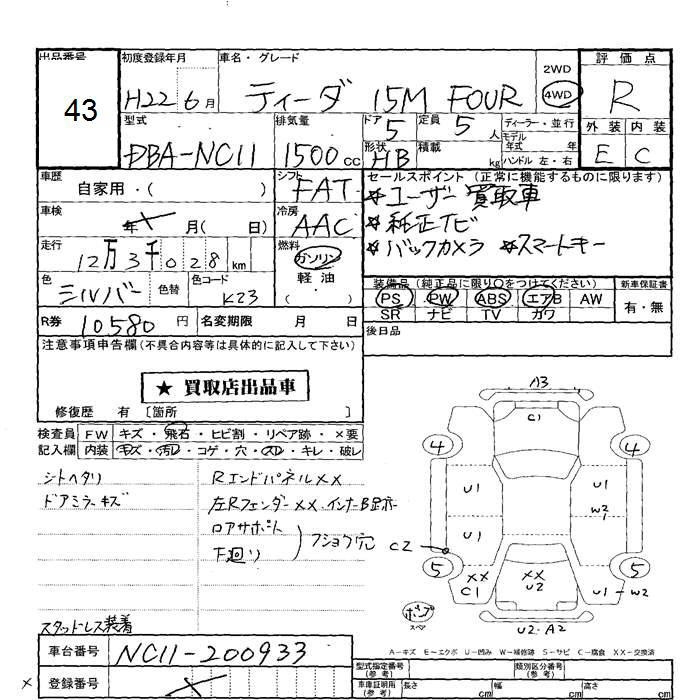 出品番号 初度登録年月 車名・グレード 2WD 4WD 評価点
43 H22 6月 ティーダ 15M FOUR R
型式 排気量 ドア 定員 ディーラー・並行 外装 内装
DBA-NC11 1500cc 5 5人 モデル年式 年式 E C
形状 積載 kg ハンドル 左・右
HB
車歴 シフト セールスポイント (正常に機能するものに限ります)
自家用・( ) FAT ★ユーザー買取車
車検 冷房 ★純正ナビ
年 月( 日) AAC ★バックカメラ ★スマートキー
走行 燃料
12万3千028km ガソリン
色 色替 色コード 軽油 装備品 (純正品に限り○をつけてください) 新車保証書
シルバー K23 ・( ) PS PW ABS エアB AW 有・無
SR ナビ TV カワ
R券 10,580円 名変期限 月 日 後日品
注意事項申告欄(不具合内容等は具体的に記入して下さい)
★ 買取店出品車
修復歴 有 〔箇所 〕
検査員 FW キズ・飛石・ヒビ割・リペア跡・×要
記入欄 内装 キズ・汚レ・コゲ・穴・スレ・キレ・破レ
シートヘタリ
ドアミラーキズ
Rエンドパネル××
左Rフェンダー××・インナーB
ロアサポート
下廻り
フショク穴
スタッドレス装着
A3
C1
4 4
U1 U1
W2
U1
C2
5 5
×× C1 ×× U2 U1-W2
スペア
U2・A2
A−キズ E−エクボ U−凹み W−補修跡 S−サビ C−腐食 XX−交換済
車台番号 NC11-200933
登録番号
型式指定番号(参考) 類別区分番号(参考)
車庫証明用(参考) 長さ cm 幅 cm 高さ cm